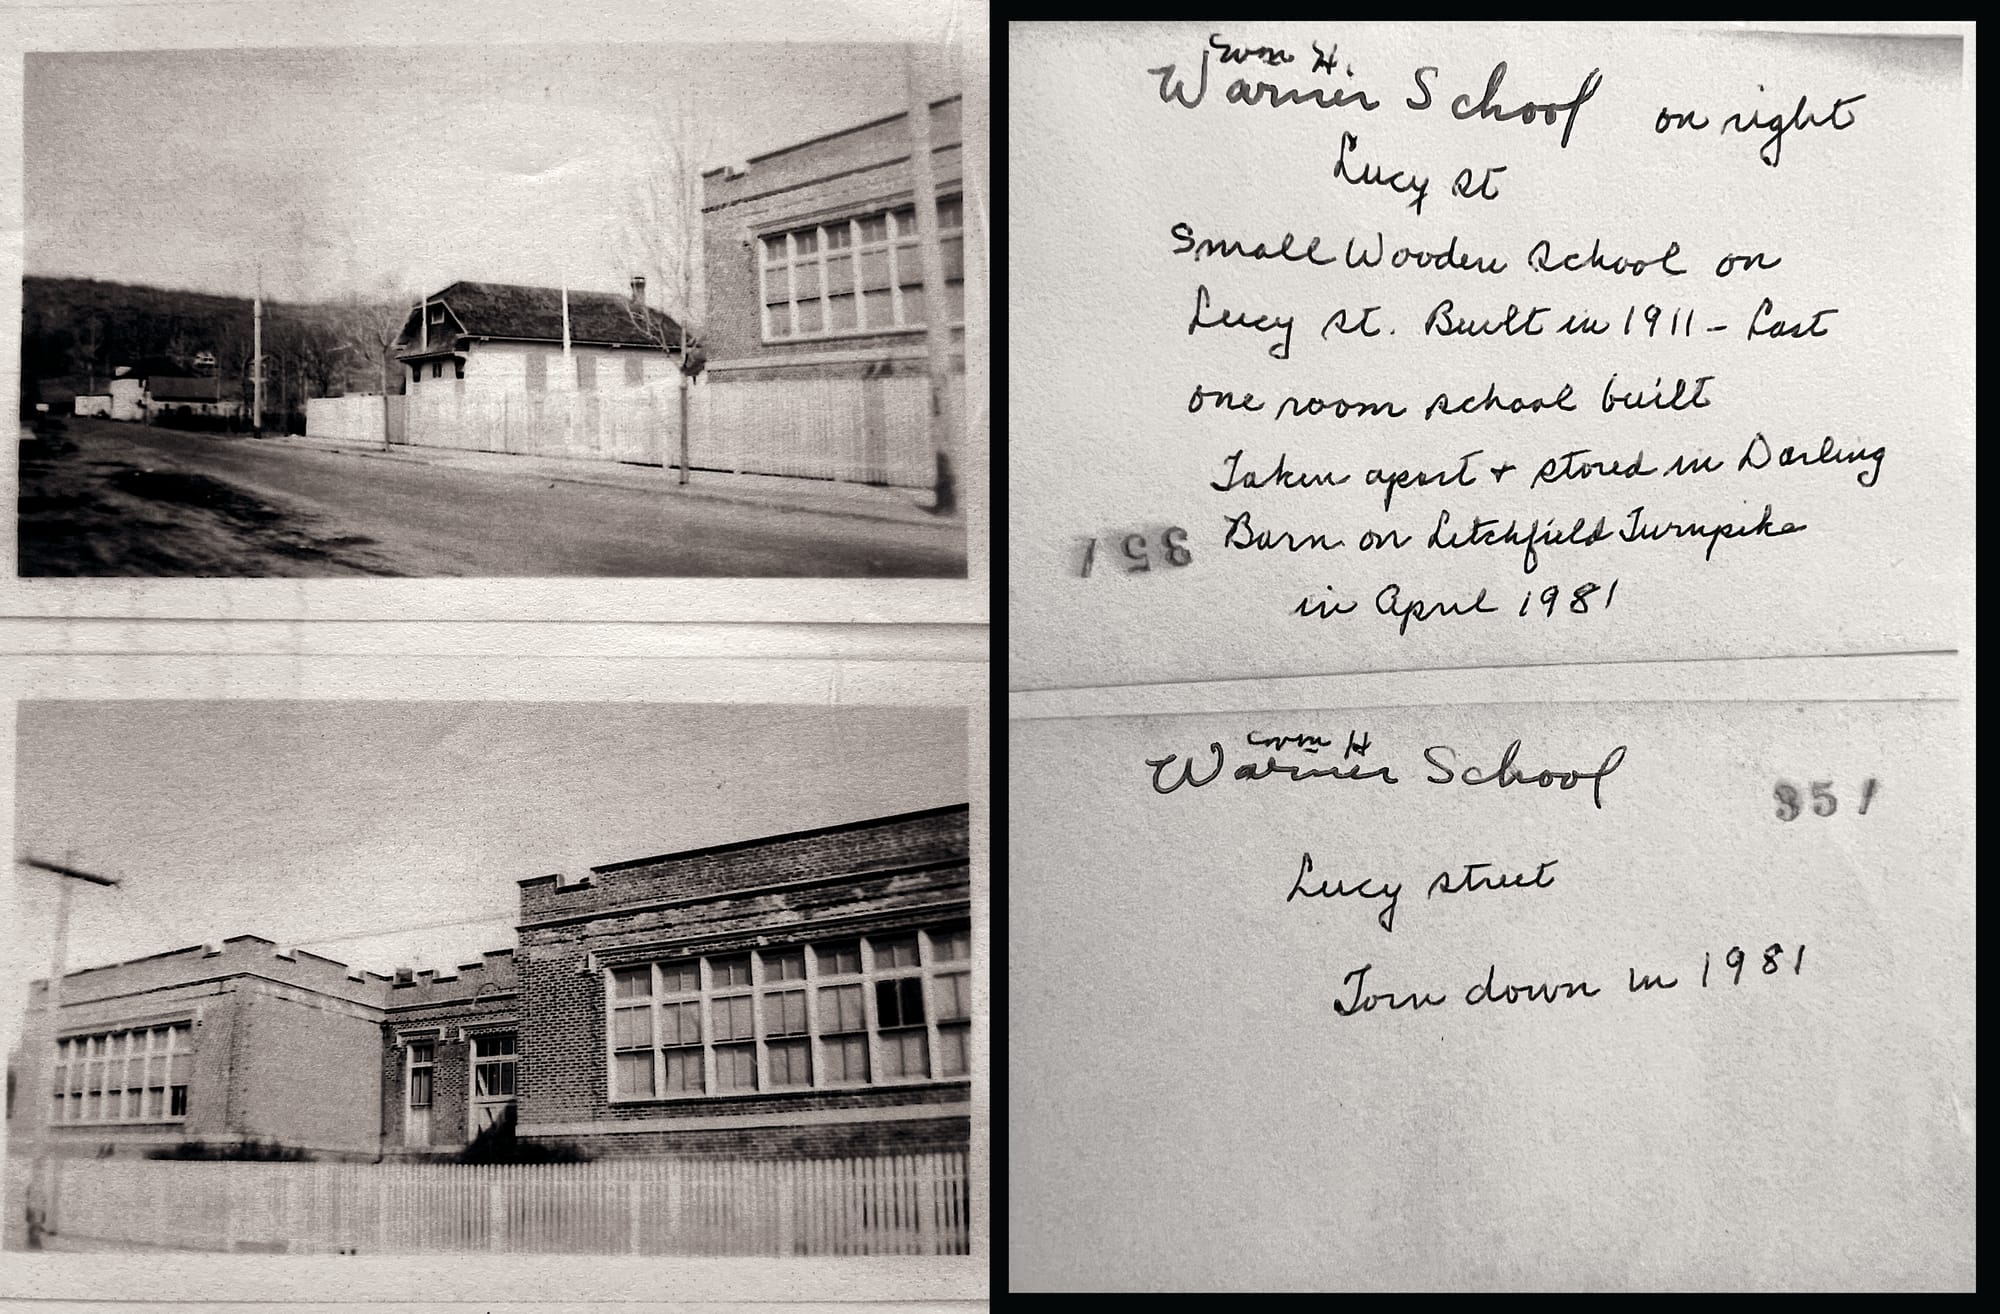 Wm H.
Warner School on right
Lucy st
Small Wooden school on
Lucy st. Built in 1911 - Last
one room school built
Taken apart + stored in Darling
Barn on Litchfield Turnpike
in April 1981
351
Wm H
Warner School
351
Lucy street
Torn down in 1981